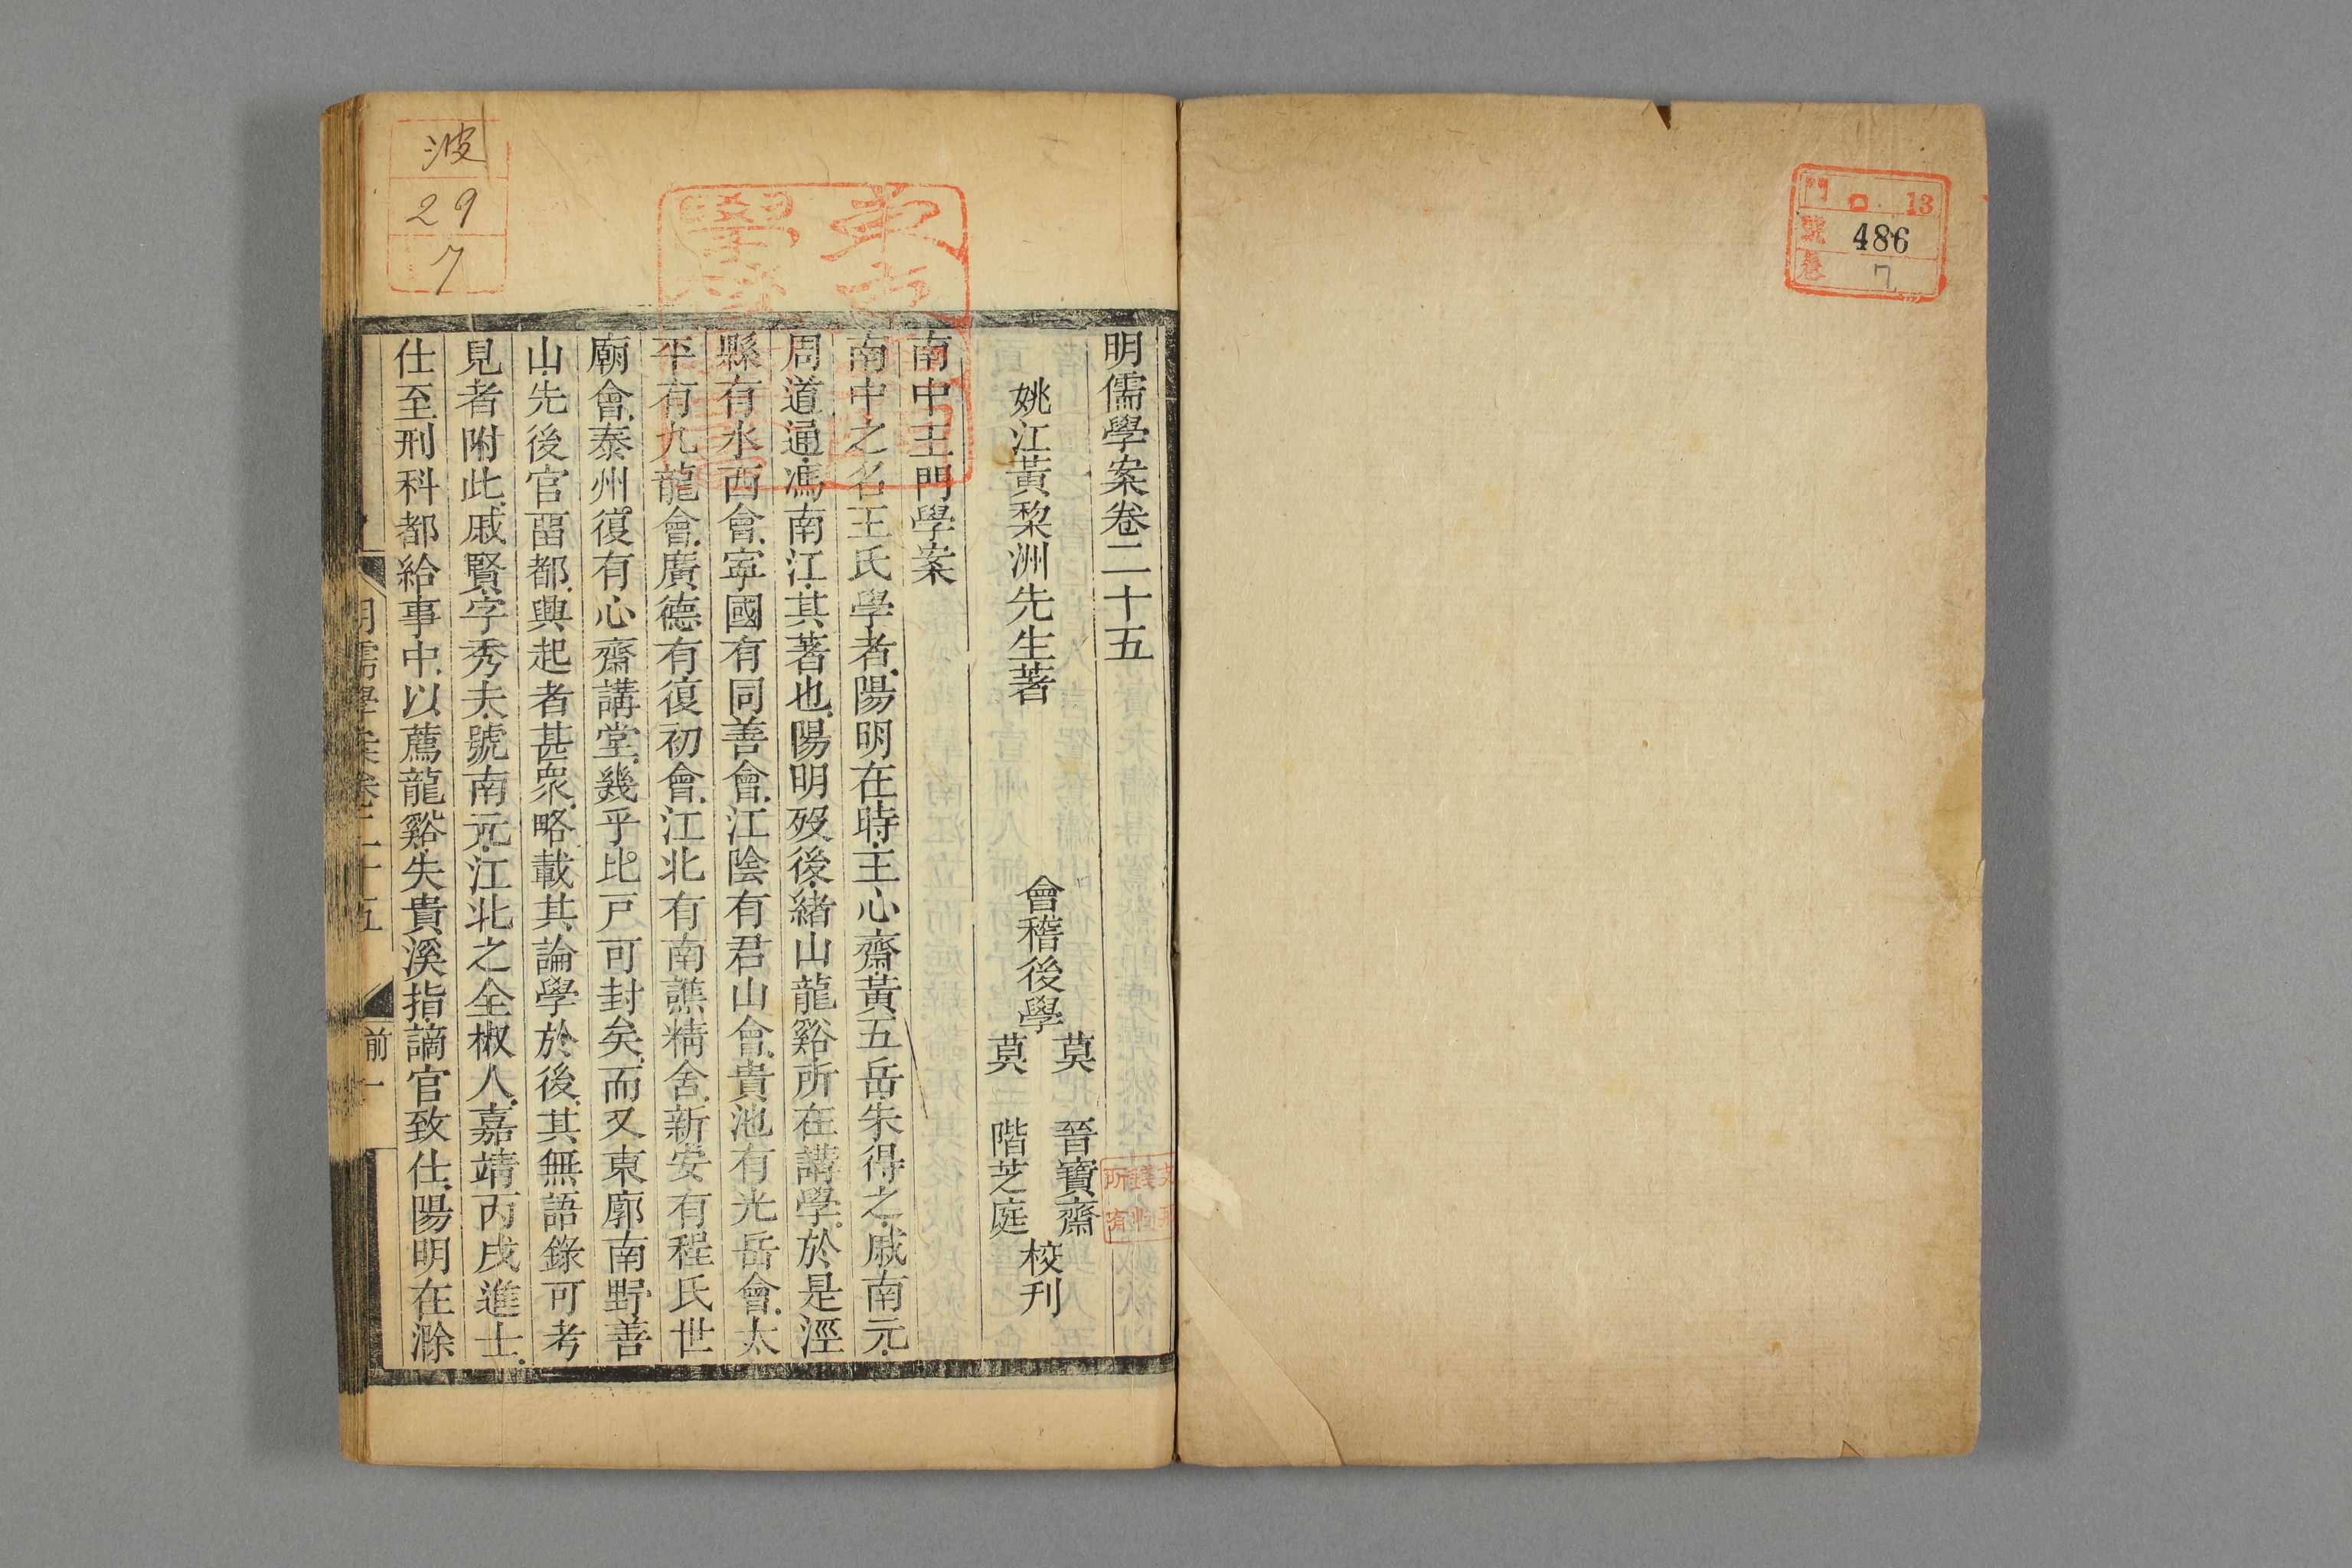 門 13
號 486
卷 7
明儒學案卷二十五
姚江黃棃洲先生著
會稽後學
莫 晉寶齋
莫 階芝庭
校刊
南中王門學案
南中之名王氏學者陽明在時王心齋黃五岳朱得之戚南元
周道通馮南江其著也陽明歿後緒山龍谿所在講學於是涇
縣有水西會寧國有同善會江陰有君山會貴池有光岳會太
平有九龍會廣德有復初會江北有南譙精舍新安有程氏世
廟會泰州復有心齋講堂幾乎比戸可封矣而又東廓南野善
山先後官畱都興起者甚衆略載其論學於後其無語錄可考
見者附此戚賢字秀夫號南元江北之全椒人嘉靖丙戌進士
仕至刑科都給事中以薦龍谿失貴溪指謫官致仕陽明在滁
明儒學案卷二十五
前一
波
29
7